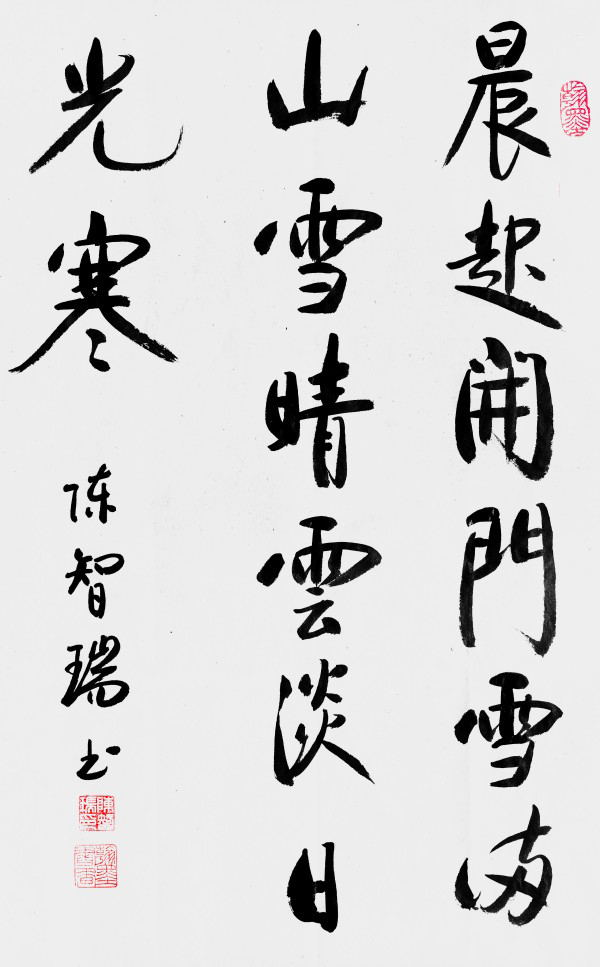 晨起開門雪滿
山雪晴雲淡日
光寒
陈智瑞书